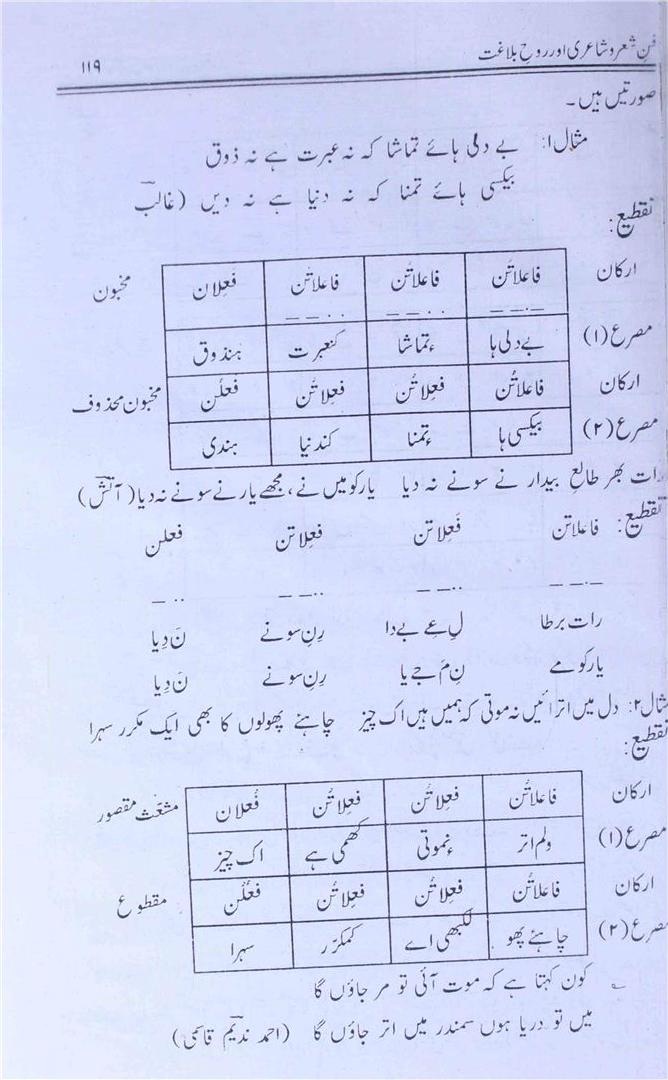 فن شعر و شاعری اور روح بلاغت ۱۱۹
صورتیں ہیں۔
مثال ۱: بے دلی ہائے تماشا کہ نہ عبرت ہے نہ ذوق
بیکسی ہائے تمنا کہ نہ دنیا ہے نہ دیں (غالب
تقطیع:
ارکان فاعلاتن فاعلاتن فاعلاتن فعلان مخبون
_ . _ _ . . _ _ . . _ _
مصرع (۱) بے دلی ہا ءِ تماشا کنعبرت ہنذوق
ارکان فاعلاتُن فعِلاتُن فعِلاتُن فعلُن مخبون محذوف
مصرع (۲) بیکسی ہا ءِ تمنا کندنیا ہندی
رات بھر طالعِ بیدار نے سونے نہ دیا یار کو میں نے، مجھے یار نے سونے نہ دیا (آتش)
تقطیع: فاعلاتن فَعِلاتن فعِلاتن فعلن
_ . _ _ . . _ _ . . _ _ . . _
رات برطا لِ عے بے دا رِنِ سونے نَ دِیا
یار کو مے نِ مُ جے یا رنِ سونے نَ دِیا
مثال ۲: دل میں اترائیں نہ موتی کہ ہمیں ہیں اک چیز چاہئے پھولوں کا بھی ایک مکرر سہرا
تقطیع:
ارکان فاعلاتُن فعِلاتُن فعِلاتُن فُعلان مشعّث مقصور
مصرع (۱) ولم اتر ءِ نموتی کھمی ہے اک چیز
ارکان فاعلاتُن فعِلاتُن فعِلاتُن فعْلُن مقطوع
مصرع (۲) چاہئے پھو لکبھی اے کمکرّر سہرا
کون کہتا ہے کہ موت آئی تو مر جاؤں گا
میں تو دریا ہوں سمندر میں اتر جاؤں گا (احمد ندیم قاسمی)